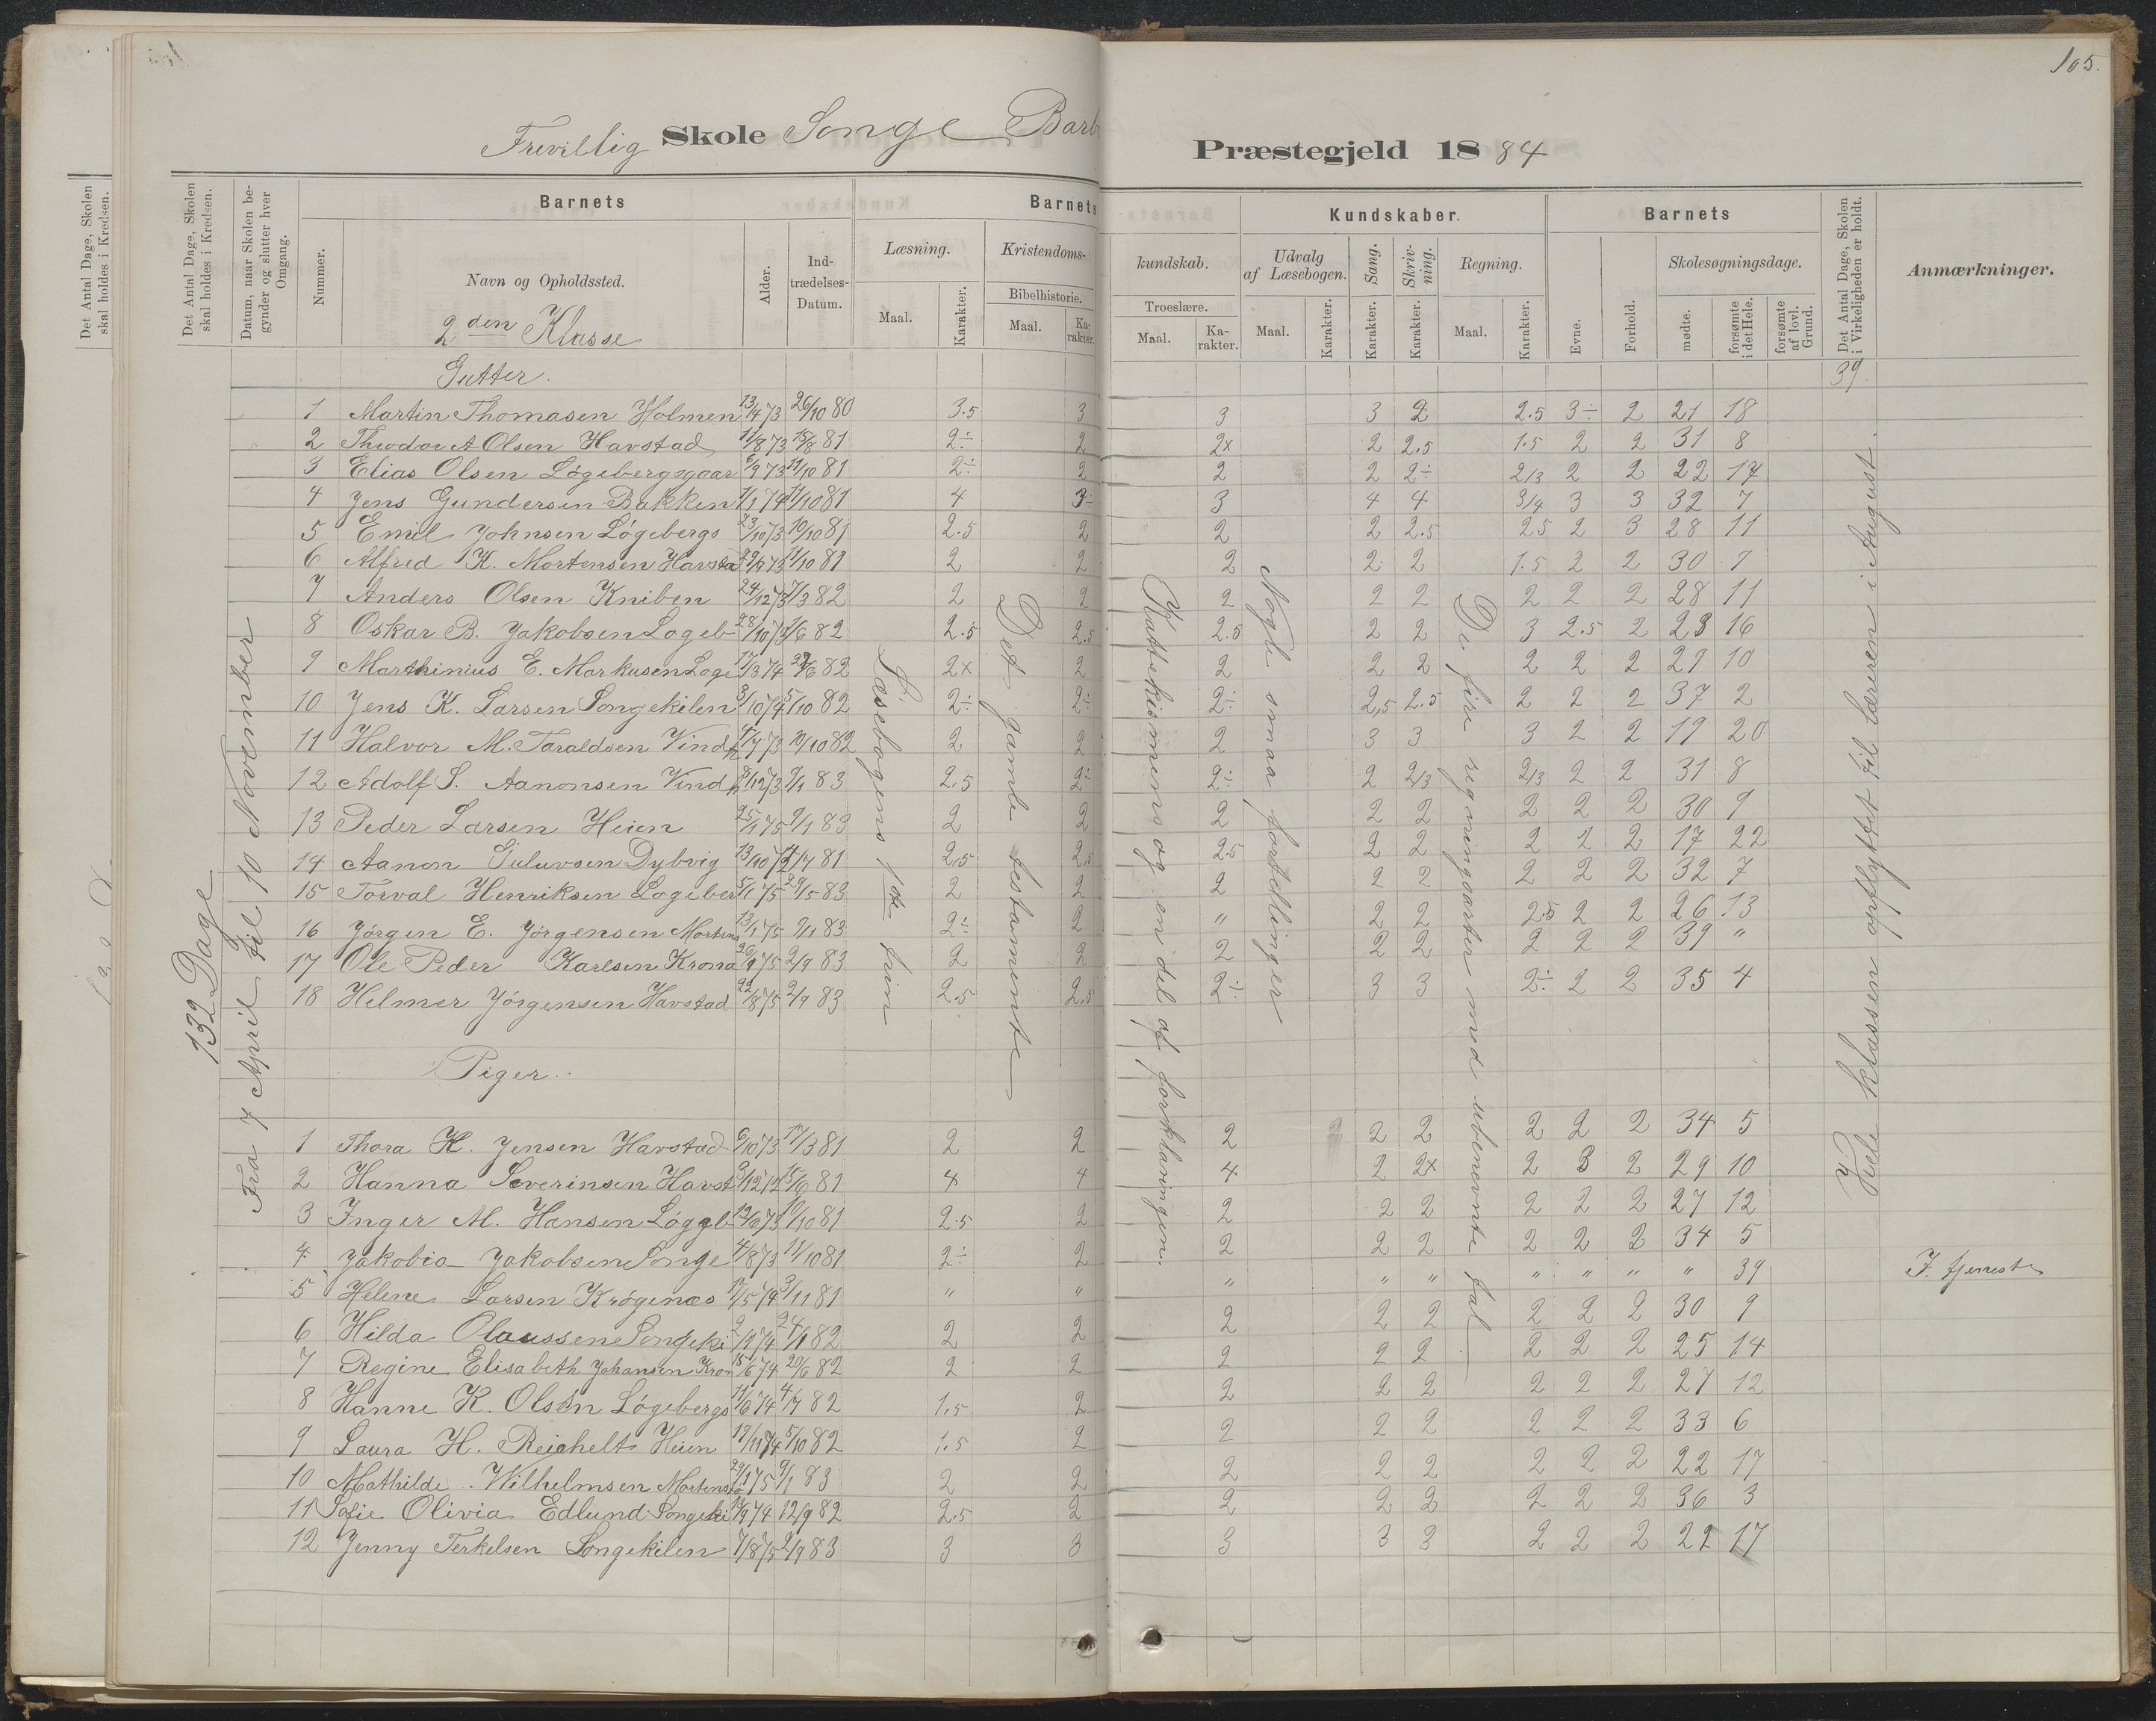 105.
Frivillig Skole Songe Barb Præstegjeld 1884
Det Antal Dage, Skolen skal holdes i Kredsen.
Det Antal Dage, Skolen skal holdes i Kredsen.
Datum, naar Skolen begynder og slutter hver Omgang.
Barnets
Nummer.
Navn og Opholdssted.
Alder.
Indtrædelses-Datum.
Barnets Kundskaber.
Læsning.
Maal. Karakter.
Kristendoms-kundskab.
Bibelhistorie.
Maal. Karakter.
Troeslære.
Maal. Karakter.
Udvalg af Læsebogen.
Maal. Karakter.
Sang. Karakter.
Skrivning. Karakter.
Regning.
Maal. Karakter.
Barnets
Evne. Forhold.
Skolesøgningsdage.
mødte. forsømte i det Hele. forsømte af lovl. Grund.
Det Antal Dage, Skolen i Virkeligheden er holdt.
Anmærkninger.
2den Klasse
Gutter. 39
1 Martin Thomasen Holmen 13/4 73 26/10 80 3.5 3 3 3 2 2.5 3÷ 2 21 18
2 Theodor A Olsen Havstad 11/8 73 15/8 81 2÷ 2 2x 2 2.5 1.5 2 2 31 8
3 Elias Olsen Løgebergsgaar 6/9 73 11/10 81 2÷ 2 2 2 2÷ 2/3 2 2 22 17
4 Jens Gundersen Bakken 1/1 74 11/10 81 4 3÷ 3 4 4 3/4 3 3 32 7
5 Emil Johnsen Løgebergs 23/10 73 10/10 81 2.5 2 2 2 2.5 2.5 2 3 28 11
6 Alfred K. Mortensen Havsta 29/9 73 11/10 81 2 2 2 2 2 1.5 2 2 30 9
7 Anders Olsen Kniben 24/12 73 7/3 82 2 2 2 2 2 2 2 2 28 11
8 Oskar B. Jakobsen Logeb 28/10 73 1/6 82 2.5 2.5 2.5 2 2 3 2.5 2 23 16
9 Marthinius E. Markusen Loge 17/3 74 22/6 82 2x 2 2 2 2 2 2 2 29 10
10 Jens K. Larsen Songekilen 3/10 74 5/10 82 2÷ 2÷ 2÷ 2,5 2.5 2 2 2 37 2
11 Halvor M. Taraldsen Vindh 17/7 73 10/10 82 2 2 2 3 3 3 2 2 19 20
12 Adolf S. Aanonsen Vindh 8/12 73 9/1 83 2.5 2÷ 2÷ 2 2/3 2/3 2 2 31 8
13 Peder Larsen Heien 25/1 75 9/1 83 2 2 2 2 2 2 2 2 30 9
14 Aanon Guluvsen Dybvig 13/10 72 14/7 81 2,5 2,5 2.5 2 2 2 2 2 17 22
15 Torval Henriksen Logeber 5/1 75 29/5 83 2 2 2 2 2 2 2 2 32 7
16 Jørgen E. Jørgensen Mortens 13/1 75 9/1 83 2÷ 2 " 2 2 2.5 2 2 26 13
17 Ole Peder Karlsen Krona 26/9 75 2/9 83 2 2 2 2 2 2 2 2 39 "
18 Helmer Jörgensen Havstad 22/8 75 2/9 83 2.5 2.5 2÷ 3 3 2÷ 2 2 35 4
Piger.
1 Thora K. Jensen Havstad 6/10 73 17/3 81 2 2 2 2 2 2 2 2 34 5
2 Hanna Severinsen Havst 9/12 72 15/6 81 4 4 4 2 2x 2 3 2 29 10
3 Inger M. Hansen Løggb 12/10 73 10/10 81 2.5 2 2 2 2 2 2 2 27 12
4 Jakobia Jakobsen Songe 4/8 73 11/10 81 2÷ 2 2 2 2 2 2 2 34 5
5 Helene Larsen Krøgenæs 17/5 74 3/11 81 " " " " " " " " " 39
6 Hilda Olaussen Songeki 2/12 74 24/1 82 2 2 2 2 2 2 2 2 30 9
7 Regine Elisabeth Johansen Kron 15/6 74 20/6 82 2 2 2 2 2 2 2 2 25 14
8 Hanne K. Olsen Løgebergs 11/6 74 4/7 82 1,5 2 2 2 2 2 2 2 27 12
9 Laura H. Reichelt Heien 19/11 74 5/10 82 1.5 2 2 2 2 2 2 2 33 6
10 Mathilde Wilhelmsen Mortensto 29/1 75 9/1 83 2 2 2 2 2 2 2 2 22 17
11 Sofie Olivia Edlund Songeki 18/9 74 12/9 82 2.5 2 2 2 2 2 2 2 36 3
12 Jenny Terkelsen Songekilen 7/8 75 2/9 83 3 3 3 3 3 2 2 2 22 17
132 Dage
Fra 7 April til 10 November
Læsebogens 1ste trin
Det gamle testamente
Kattekismens og en del af forklaringen.
Nogle smaa fortellinger
De fire regningsarter med ubenevnte tal
Hele klassen opflyttet til læreren i August.